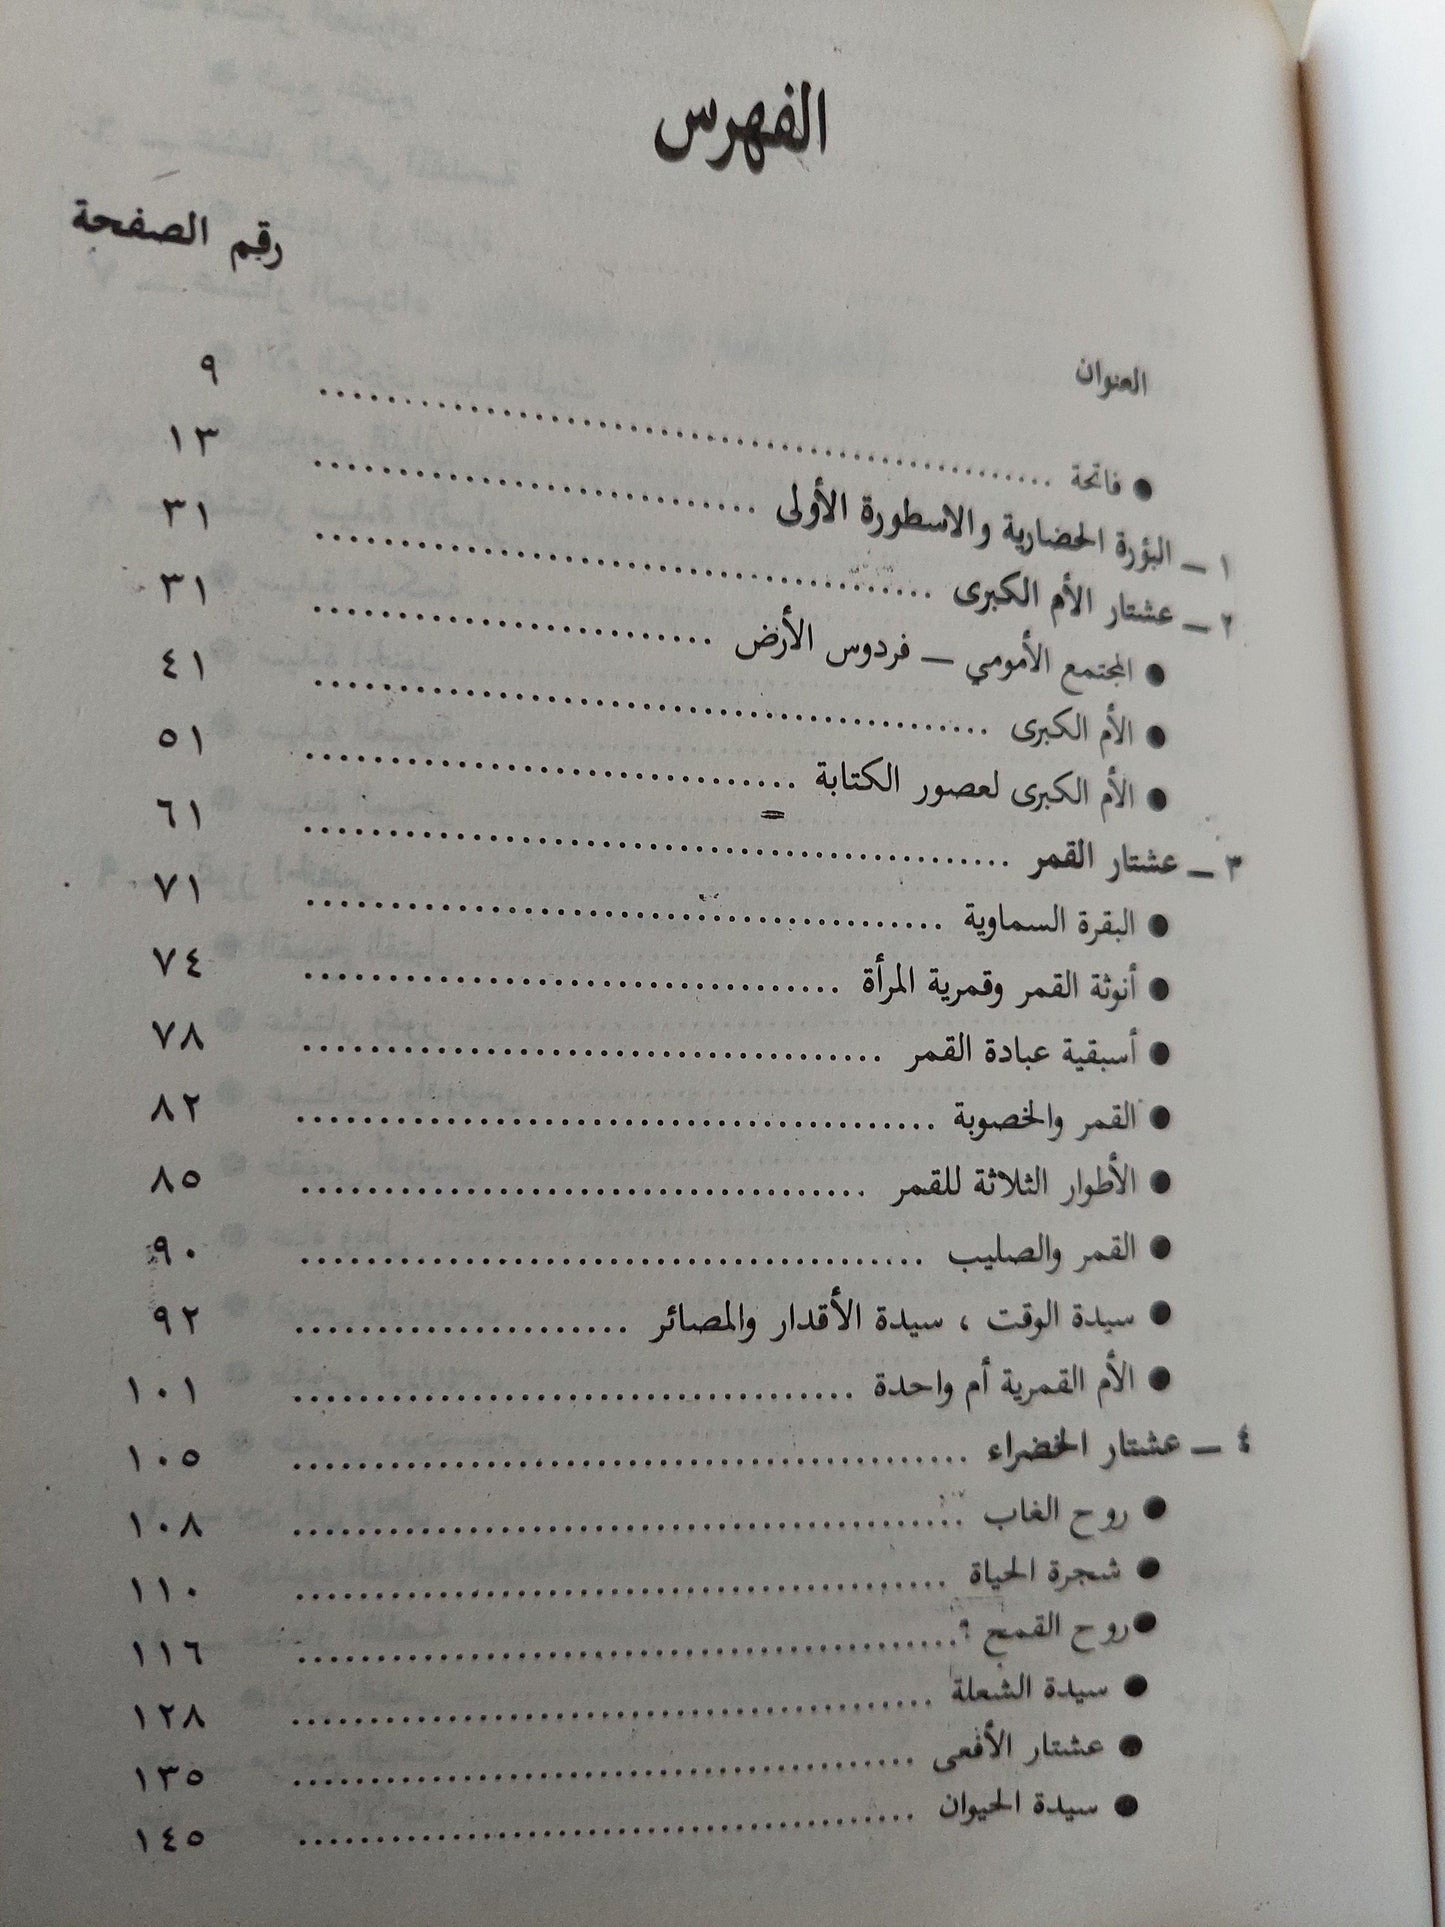 الفهرس
رقم الصفحة
العنوان
● فاتحة ........................................ ٩
١ ـ البؤرة الحضارية والاسطورة الأولى ........................................ ١٣
٢ ـ عشتار الأم الكبرى ........................................ ٣١
● المجتمع الأمومي ـ فردوس الأرض ........................................ ٣١
● الأم الكبرى ........................................ ٤١
● الأم الكبرى لعصور الكتابة ........................................ ٥١
٣ ـ عشتار القمر ........................................ ٦١
● البقرة السماوية ........................................ ٧١
● أنوثة القمر وقمرية المرأة ........................................ ٧٤
● أسبقية عبادة القمر ........................................ ٧٨
● القمر والخصوبة ........................................ ٨٢
● الأطوار الثلاثة للقمر ........................................ ٨٥
● القمر والصليب ........................................ ٩٠
● سيدة الوقت ، سيدة الأقدار والمصائر ........................................ ٩٢
● الأم القمرية أم واحدة ........................................ ١٠١
٤ ـ عشتار الخضراء ........................................ ١٠٥
● روح الغاب ........................................ ١٠٨
● شجرة الحياة ........................................ ١١٠
● روح القمح ؟ ........................................ ١١٦
● سيدة الشعلة ........................................ ١٢٨
● عشتار الأفعى ........................................ ١٣٥
● سيدة الحيوان ........................................ ١٤٥